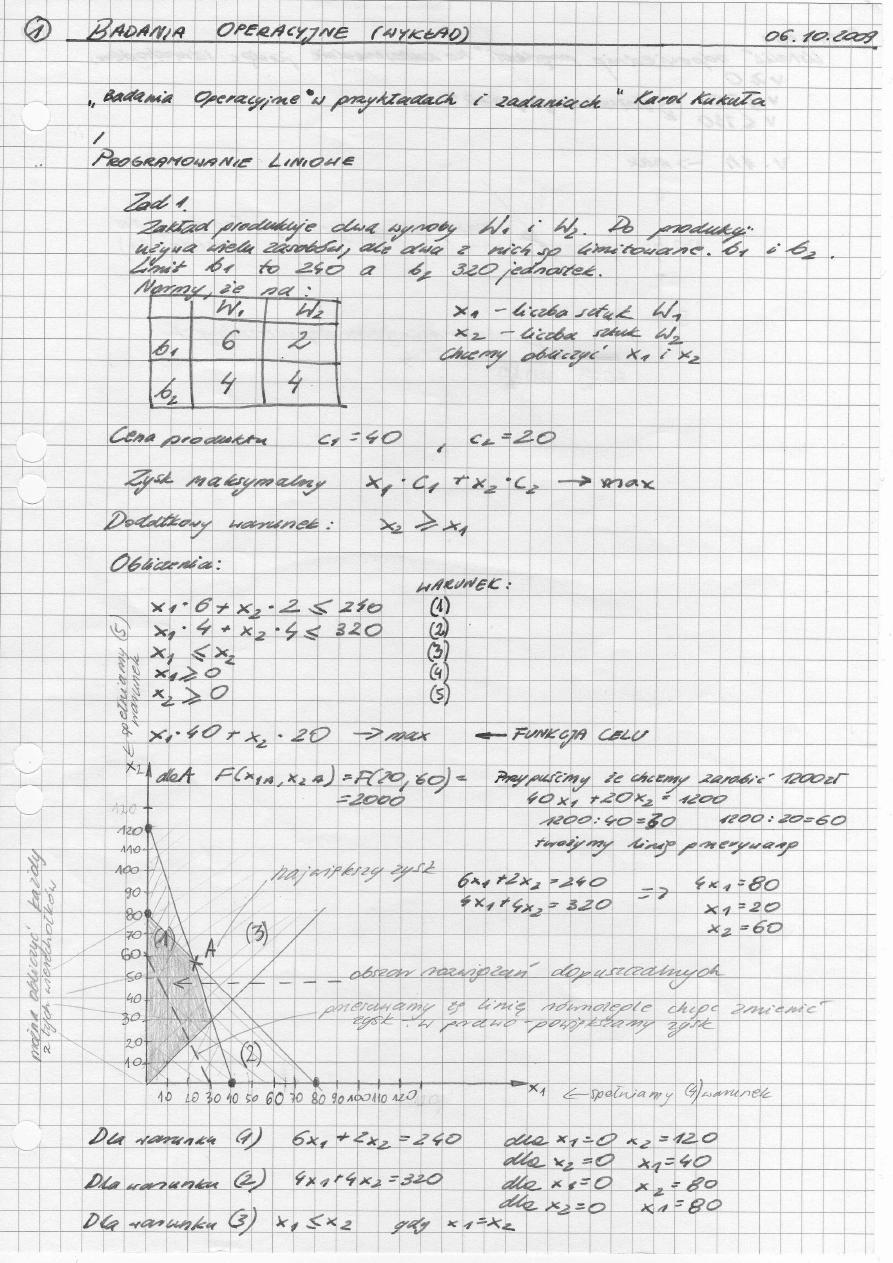 1 BADANIA OPERACYJNE (WYKŁAD) 06.10.2009
"Badania Operacyjne w przykładach i zadaniach" Karol Kukuła
PROGRAMOWANIE LINIOWE
Zad 1.
Zakład produkuje dwa wyroby W₁ i W₂. Do produkcji
używa wielu zasobów, ale dwa z nich są limitowane. b₁ i b₂.
Limit b₁ to 240 a b₂ 320 jednostek.
Normy, że na:
W₁ W₂
b₁ 6 2
b₂ 4 4
x₁ - liczba sztuk W₁
x₂ - liczba sztuk W₂
Chcemy obliczyć x₁ i x₂
Cena produktu c₁=40 , c₂=20
Zysk maksymalny x₁·c₁+x₂·c₂ → max
Dodatkowy warunek: x₂ ⩾ x₁
Obliczenia:
WARUNEK:
x₁·6+x₂·2 ≤ 240 (1)
x₁·4+x₂·4 ≤ 320 (2)
x₁ ≤ x₂ (3)
x₁ ⩾ 0 (4)
x₂ ⩾ 0 (5)
x₁·40+x₂·20 → max ← FUNKCJA CELU
← spełniamy (5) warunek
x₂
dla A F(x₁A, x₂A)=F(20,60)=
=2000
Przypuśćmy że chcemy zarobić 1200zł
40x₁+20x₂=1200
1200:40=30 1200:20=60
tworzymy linię przerywaną
największy zysk
6x₁+2x₂=240
4x₁+4x₂=320
=>
4x₁=80
x₁=20
x₂=60
można obliczyć każdy
z tych wierzchołków
120
120
110
100
90
80
70
60
50
40
30
20
10
(1) A (3)
(2)
obszar rozwiązań dopuszczalnych
przesuwamy tę linię równolegle chcąc zmienić
zysk - w prawo - powiększamy zysk
10 20 30 40 50 60 70 80 90 100 110 120
x₁ ← spełniamy (4) warunek
Dla warunku (1) 6x₁+2x₂=240 dla x₁=0 x₂=120
dla x₂=0 x₁=40
Dla warunku (2) 4x₁+4x₂=320 dla x₁=0 x₂=80
dla x₂=0 x₁=80
Dla warunku (3) x₁≤x₂ gdy x₁=x₂